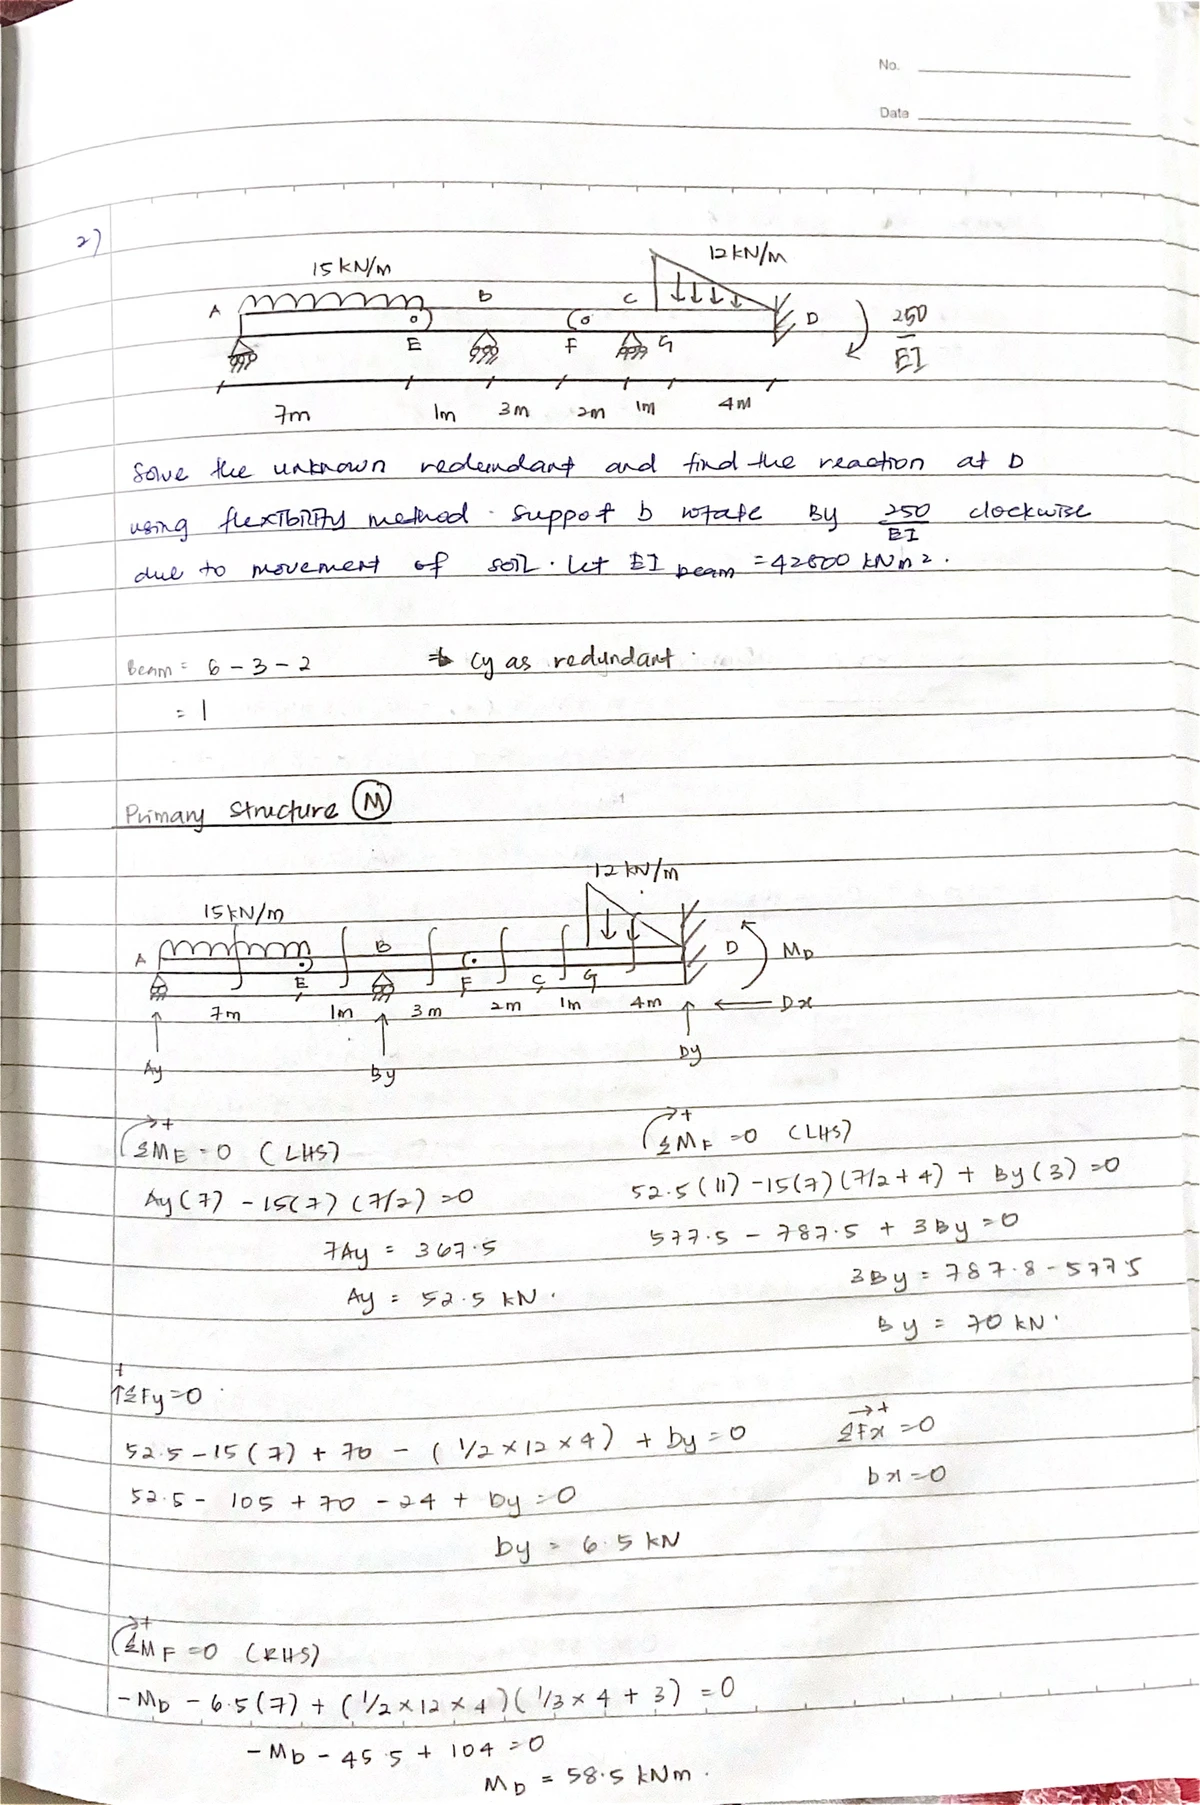 No.
Date
2)
15 kN/m
12 kN/m
A
B
C
D
E
F
G
250
EI
7m
1m
3m
2m
1m
4m
Solve the unknown redundant and find the reaction at D
using flexibility method. Suppot b rotate By 250/EI clockwise
due to movement of soil. Let EI beam = 42600 kNm2.
Beam = 6 - 3 - 2
Cy as redundant.
= 1
Primary Structure M
12 kN/m
15 kN/m
A
B
D
MD
E
F
C
G
7m
1m
3m
2m
1m
4m
Dx
Ay
By
Dy
+
ΣME = 0 (LHS)
Ay(7) - 15(7)(7/2) = 0
7Ay = 367.5
Ay = 52.5 kN.
+
ΣMF = 0 (LHS)
52.5(11) - 15(7)(7/2 + 4) + By(3) = 0
577.5 - 787.5 + 3By = 0
3By = 787.8 - 577.5
By = 70 kN.
+
↑ΣFy = 0
52.5 - 15(7) + 70 - (1/2 × 12 × 4) + by = 0
52.5 - 105 + 70 - 24 + by = 0
by = 6.5 kN
→+
ΣFx = 0
bx = 0
+
ΣMF = 0 (RHS)
- MD - 6.5(7) + (1/2 × 12 × 4)(1/3 × 4 + 3) = 0
- Mb - 45.5 + 104 = 0
MD = 58.5 kNm.